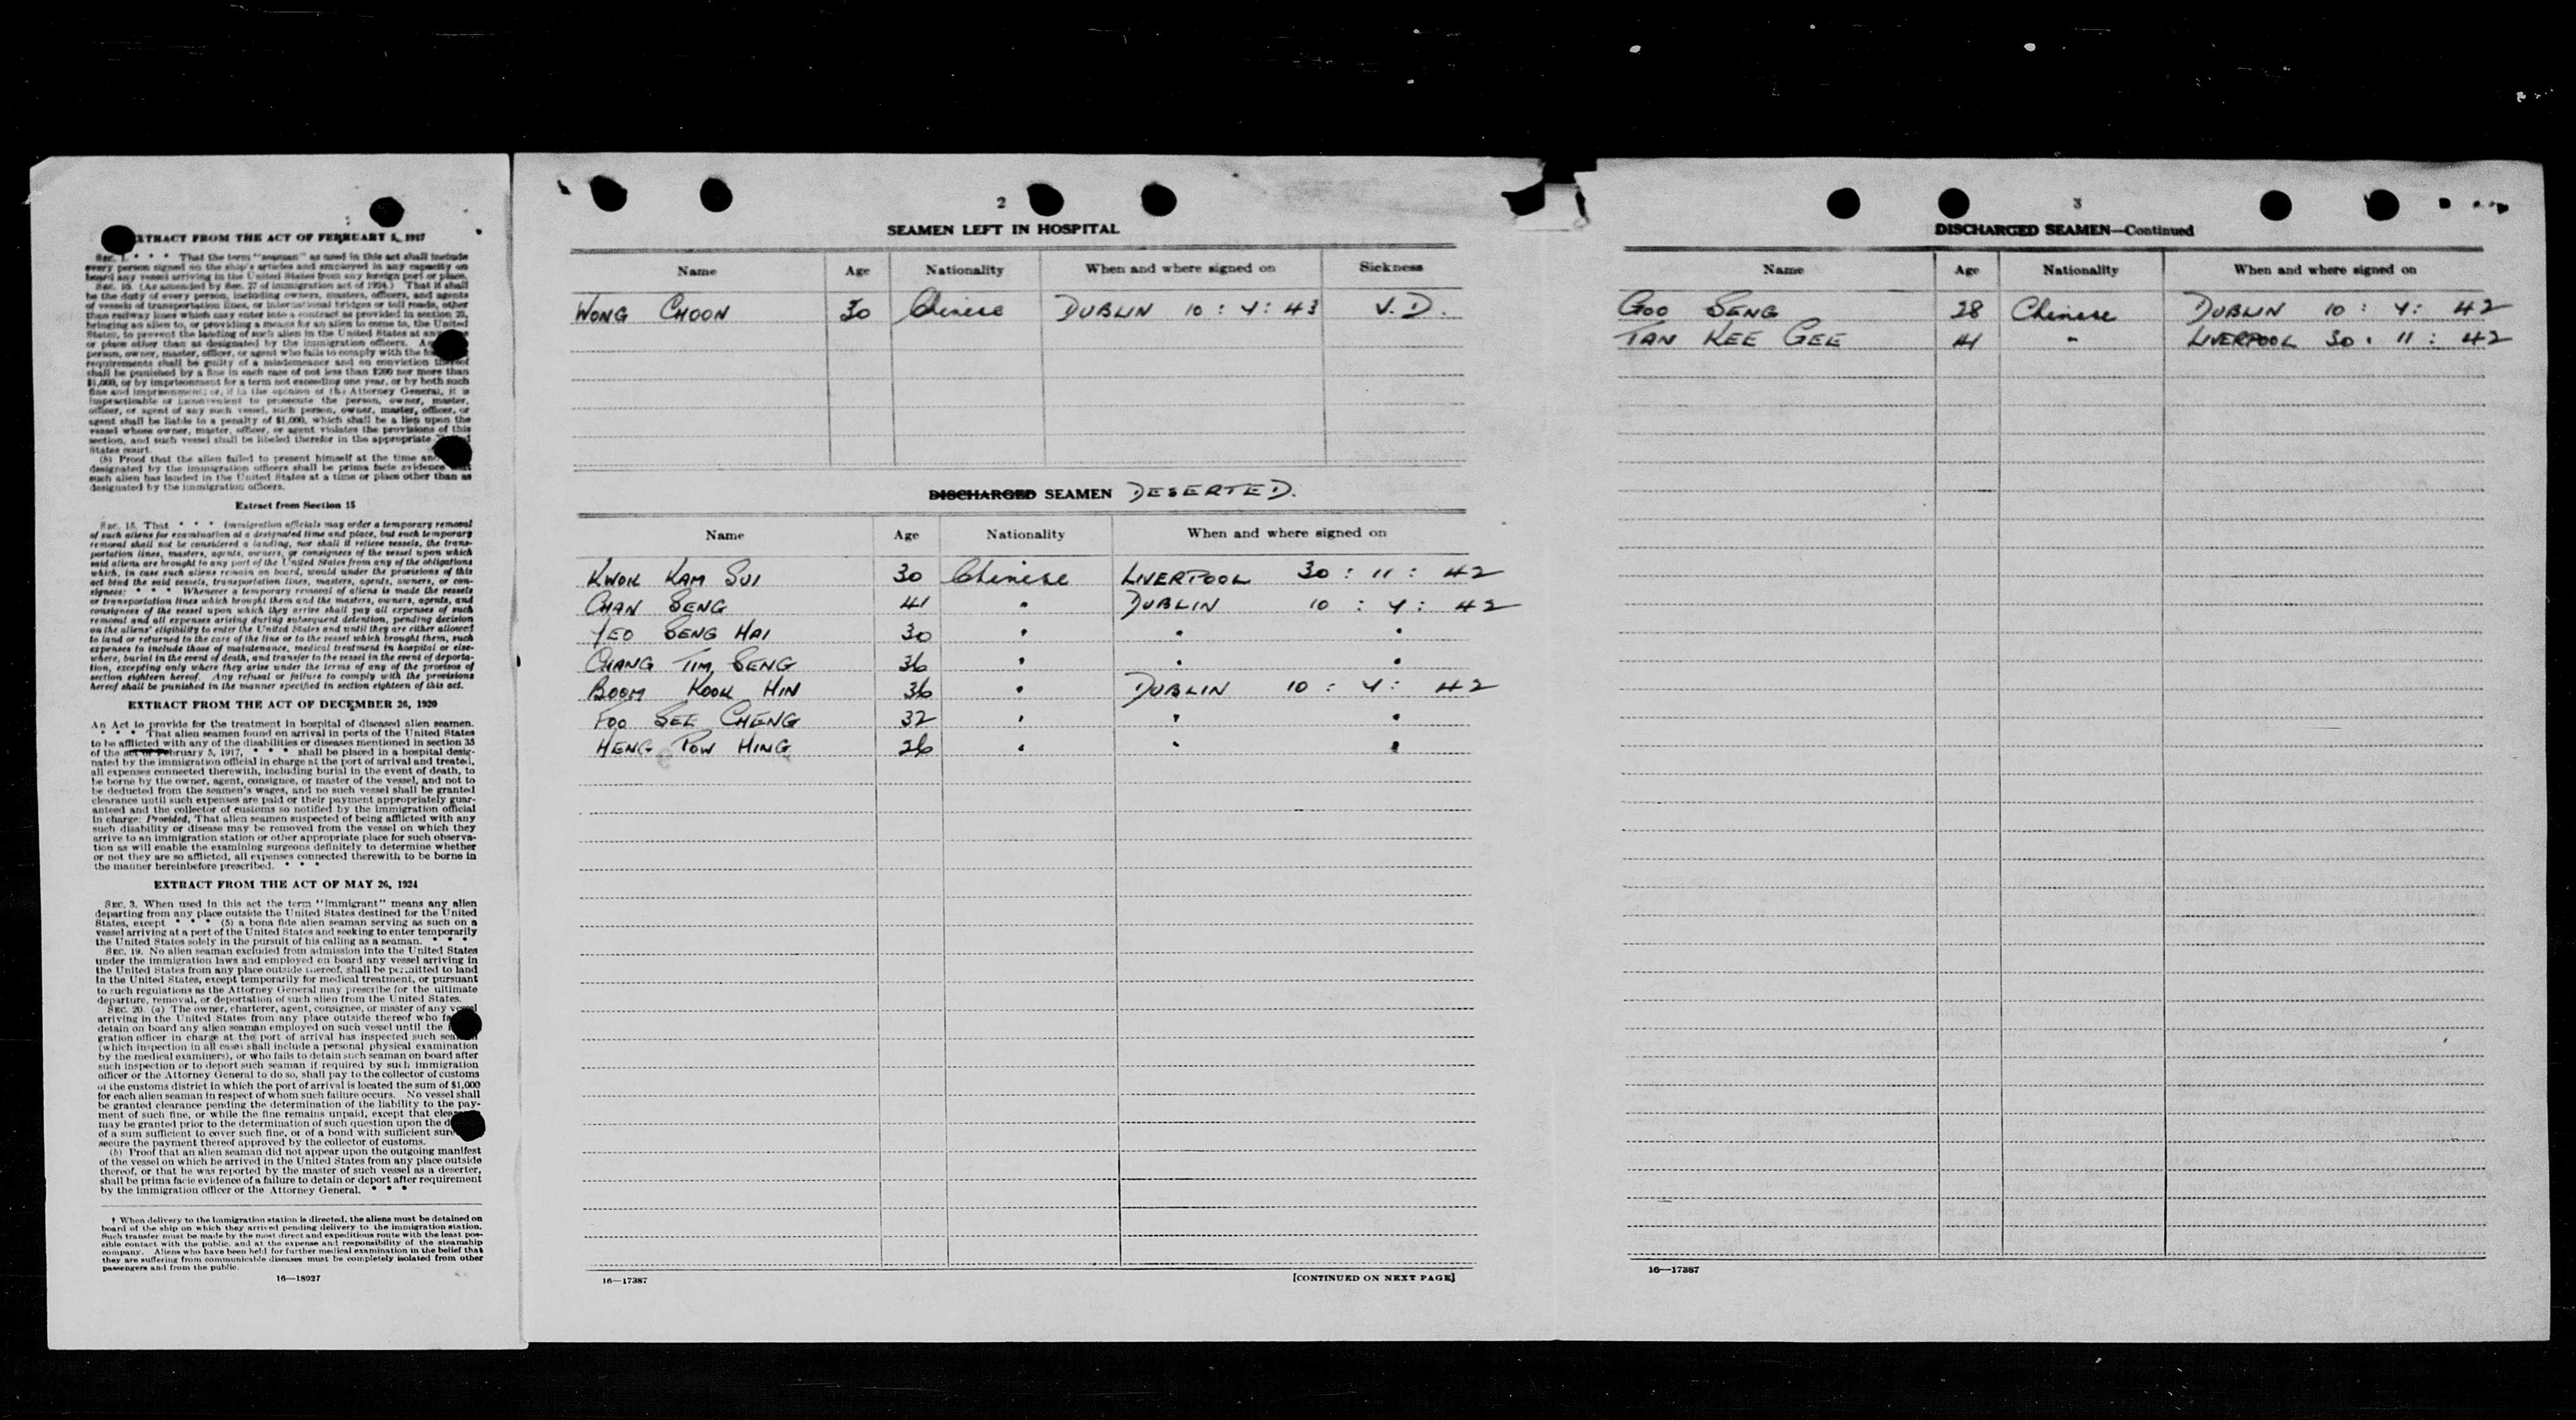 EXTRACT FROM THE ACT OF FEBRUARY 5, 1917
SEC. 1. * * * That the term "seaman" as used in this act shall include
every person signed on the ship's articles and employed in any capacity on
board any vessel arriving in the United States from any foreign port or place.
SEC. 10. (As amended by Sec. 27 of immigration act of 1924.) That it shall
be the duty of every person, including owners, masters, officers, and agents
of vessels of transportation lines, or international bridges or toll roads, other
than railway lines which may enter into a contract as provided in section 23,
bringing an alien to, or providing a means for an alien to come to, the United
States, to prevent the landing of such alien in the United States at any
or place other than as designated by the immigration officers.
person, owner, master, officer, or agent who fails to comply with the
requirements shall be guilty of a misdemeanor and on conviction
shall be punished by a fine in each case of not less than $200 nor more than
$1,000, or by imprisonment for a term not exceeding one year, or by both such
fine and imprisonment; or, if in the opinion of the Attorney General, it is
impracticable or inconvenient to prosecute the person, owner, master,
officer, or agent of any such vessel, such person, owner, master, officer, or
agent shall be liable to a penalty of $1,000, which shall be a lien upon the
vessel whose owner, master, officer, or agent violates the provisions of this
section, and such vessel shall be libeled therefor in the appropriate
States court.
(b) Proof that the alien failed to present himself at the time and
designated by the immigration officers shall be prima facie evidence
such alien has landed in the United States at a time or place other than as
designated by the immigration officers.
Extract from Section 15
SEC. 15. That * * * immigration officials may order a temporary removal
of such aliens for examination at a designated time and place, but such temporary
removal shall not be considered a landing, nor shall it relieve vessels, the trans-
portation lines, masters, agents, owners, or consignees of the vessel upon which
said aliens are brought to any port of the United States from any of the obligations
which, in case such aliens remain on board, would under the provisions of this
act bind the said vessels, transportation lines, masters, agents, owners, or con-
signees: * * * Whenever a temporary removal of aliens is made the vessels
or transportation lines which brought them and the masters, owners, agents, and
consignees of the vessel upon which they arrive shall pay all expenses of such
removal and all expenses arising during subsequent detention, pending decision
on the aliens' eligibility to enter the United States and until they are either allowed
to land or returned to the care of the line or to the vessel which brought them, such
expenses to include those of maintenance, medical treatment in hospital or else-
where, burial in the event of death, and transfer to the vessel in the event of deporta-
tion, excepting only where they arise under the terms of any of the provisos of
section eighteen hereof. Any refusal or failure to comply with the provisions
hereof shall be punished in the manner specified in section eighteen of this act.
EXTRACT FROM THE ACT OF DECEMBER 26, 1920
An Act to provide for the treatment in hospital of diseased alien seamen.
* * * That alien seamen found on arrival in ports of the United States
to be afflicted with any of the disabilities or diseases mentioned in section 35
of the act of February 5, 1917, * * * shall be placed in a hospital desig-
nated by the immigration official in charge at the port of arrival and treated,
all expenses connected therewith, including burial in the event of death, to
be borne by the owner, agent, consignee, or master of the vessel, and not to
be deducted from the seamen's wages, and no such vessel shall be granted
clearance until such expenses are paid or their payment appropriately guar-
anteed and the collector of customs so notified by the immigration official
in charge: Provided, That alien seamen suspected of being afflicted with any
such disability or disease may be removed from the vessel on which they
arrive to an immigration station or other appropriate place for such observa-
tion as will enable the examining surgeons definitely to determine whether
or not they are so afflicted, all expenses connected therewith to be borne in
the manner hereinbefore prescribed. * * *
EXTRACT FROM THE ACT OF MAY 26, 1924
SEC. 3. When used in this act the term "immigrant" means any alien
departing from any place outside the United States destined for the United
States, except * * * (5) a bona fide alien seaman serving as such on a
vessel arriving at a port of the United States and seeking to enter temporarily
the United States solely in the pursuit of his calling as a seaman. * * *
SEC. 19. No alien seaman excluded from admission into the United States
under the immigration laws and employed on board any vessel arriving in
the United States from any place outside thereof, shall be permitted to land
in the United States, except temporarily for medical treatment, or pursuant
to such regulations as the Attorney General may prescribe for the ultimate
departure, removal, or deportation of such alien from the United States.
SEC. 20. (a) The owner, charterer, agent, consignee, or master of any vessel
arriving in the United States from any place outside thereof who
detain on board any alien seaman employed on such vessel until the
gration officer in charge at the port of arrival has inspected such seaman
(which inspection in all cases shall include a personal physical examination
by the medical examiners), or who fails to detain such seaman on board after
such inspection or to deport such seaman if required by such immigration
officer or the Attorney General to do so, shall pay to the collector of customs
of the customs district in which the port of arrival is located the sum of $1,000
for each alien seaman in respect of whom such failure occurs. No vessel shall
be granted clearance pending the determination of the liability to the pay-
ment of such fine, or while the fine remains unpaid, except that
may be granted prior to the determination of such question upon the
of a sum sufficient to cover such fine, or of a bond with sufficient
secure the payment thereof approved by the collector of customs.
(b) Proof that an alien seaman did not appear upon the outgoing manifest
of the vessel on which he arrived in the United States from any place outside
thereof, or that he was reported by the master of such vessel as a deserter,
shall be prima facie evidence of a failure to detain or deport after requirement
by the immigration officer or the Attorney General. * * *
† When delivery to the immigration station is directed, the aliens must be detained on
board of the ship on which they arrived pending delivery to the immigration station.
Such transfer must be made by the most direct and expeditious route with the least pos-
sible contact with the public, and at the expense and responsibility of the steamship
company. Aliens who have been held for further medical examination in the belief that
they are suffering from communicable diseases must be completely isolated from other
passengers and from the public.
16—18927
2
SEAMEN LEFT IN HOSPITAL
Name Age Nationality When and where signed on Sickness
WONG CHOON 30 Chinese DUBLIN 10 : 4 : 43 V.D.
DISCHARGED SEAMEN DESERTED.
Name Age Nationality When and where signed on
KWOK KAM SUI 30 Chinese LIVERPOOL 30 : 11 : 42
CHAN SENG 41 " DUBLIN 10 : 4 : 42
YEO SENG HAI 30 " " "
CHANG TIM SENG 36 " " "
BOOM KOOK HIN 36 " DUBLIN 10 : 4 : 42
FOO SEE CHENG 32 " " "
HENG POW HING 26 " " "
16—17387 [CONTINUED ON NEXT PAGE]
3
DISCHARGED SEAMEN—Continued
Name Age Nationality When and where signed on
GOO SENG 28 Chinese DUBLIN 10 : 4 : 42
TAN KEE GEE 41 " LIVERPOOL 30 . 11 : 42
16—17387